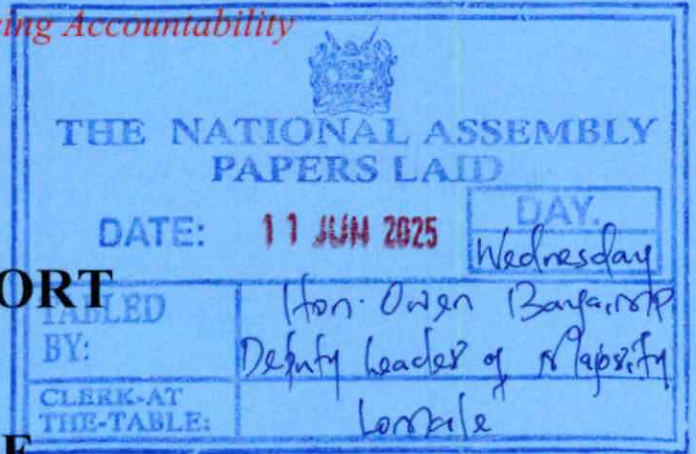 ing Accountability
THE NATIONAL ASSEMBLY
PAPERS LAID
DATE: 11 JUN 2025
DAY.
Wednesday
ORT
TABLED
BY:
Hon. Owen Baya, MP
Deputy Leader of Majority
CLERK-AT
THE-TABLE:
E